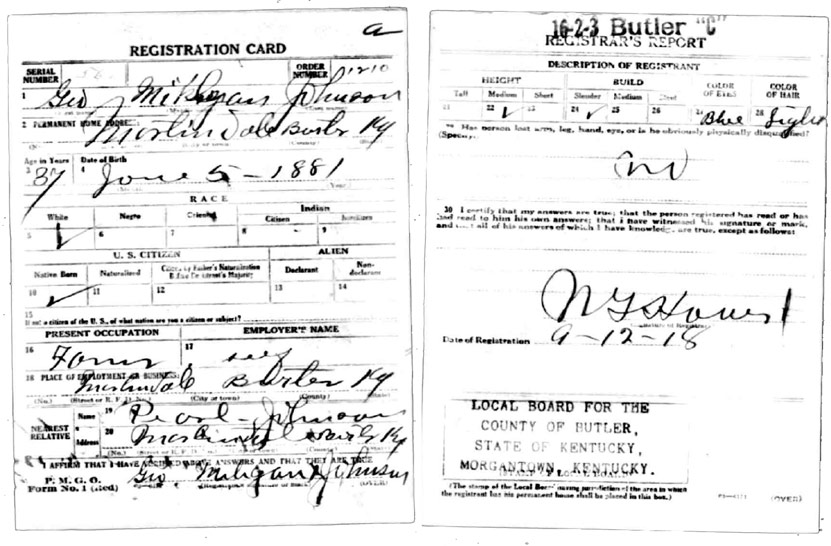 a
REGISTRATION CARD
SERIAL NUMBER
ORDER NUMBER
1210
1 Geo Milligan Johnson
2 PERMANENT HOME ADDRESS:
Martindale Butler Ky
Age in Years
Date of Birth
3 37 4 June 5 - 1881
RACE
White Negro Oriental Indian
Citizen Noncitizen
5 ✓ 6 7 8 9
U. S. CITIZEN ALIEN
Native Born Naturalized Citizen by Father's Naturalization Before Registrant's Majority Declarant Non-declarant
10 ✓ 11 12 13 14
15
If not a citizen of the U. S., of what nation are you a citizen or subject?
PRESENT OCCUPATION EMPLOYER'S NAME
16 Farmer 17 self
18 PLACE OF EMPLOYMENT OR BUSINESS:
Martindale Butler Ky
(No.) (Street or R. F. D. No.) (City or town) (County) (State)
NEAREST RELATIVE
Name 19 Pearl Johnson
Address 20 Martindale Butler Ky
(No.)
I AFFIRM THAT I HAVE VERIFIED ABOVE ANSWERS AND THAT THEY ARE TRUE
P. M. G. O.
Form No. 1 (Red)
Geo. Milligan Johnson
(OVER)
16-2-3 Butler "C"
REGISTRAR'S REPORT
DESCRIPTION OF REGISTRANT
HEIGHT BUILD COLOR OF EYES COLOR OF HAIR
Tall Medium Short Slender Medium Stout
21 22 ✓ 23 24 ✓ 25 26 27 Blue 28 Light
29 Has person lost arm, leg, hand, eye, or is he obviously physically disqualified?
(Specify.)
no
30 I certify that my answers are true; that the person registered has read or has
had read to him his own answers; that I have witnessed his signature or mark,
and that all of his answers of which I have knowledge are true, except as follows:
(Signature of Registrar)
Date of Registration 9-12-18
LOCAL BOARD FOR THE
COUNTY OF BUTLER,
STATE OF KENTUCKY,
MORGANTOWN, KENTUCKY.
(The stamp of the Local Board having jurisdiction of the area in which
the registrant has his permanent home shall be placed in this box.)
(OVER)